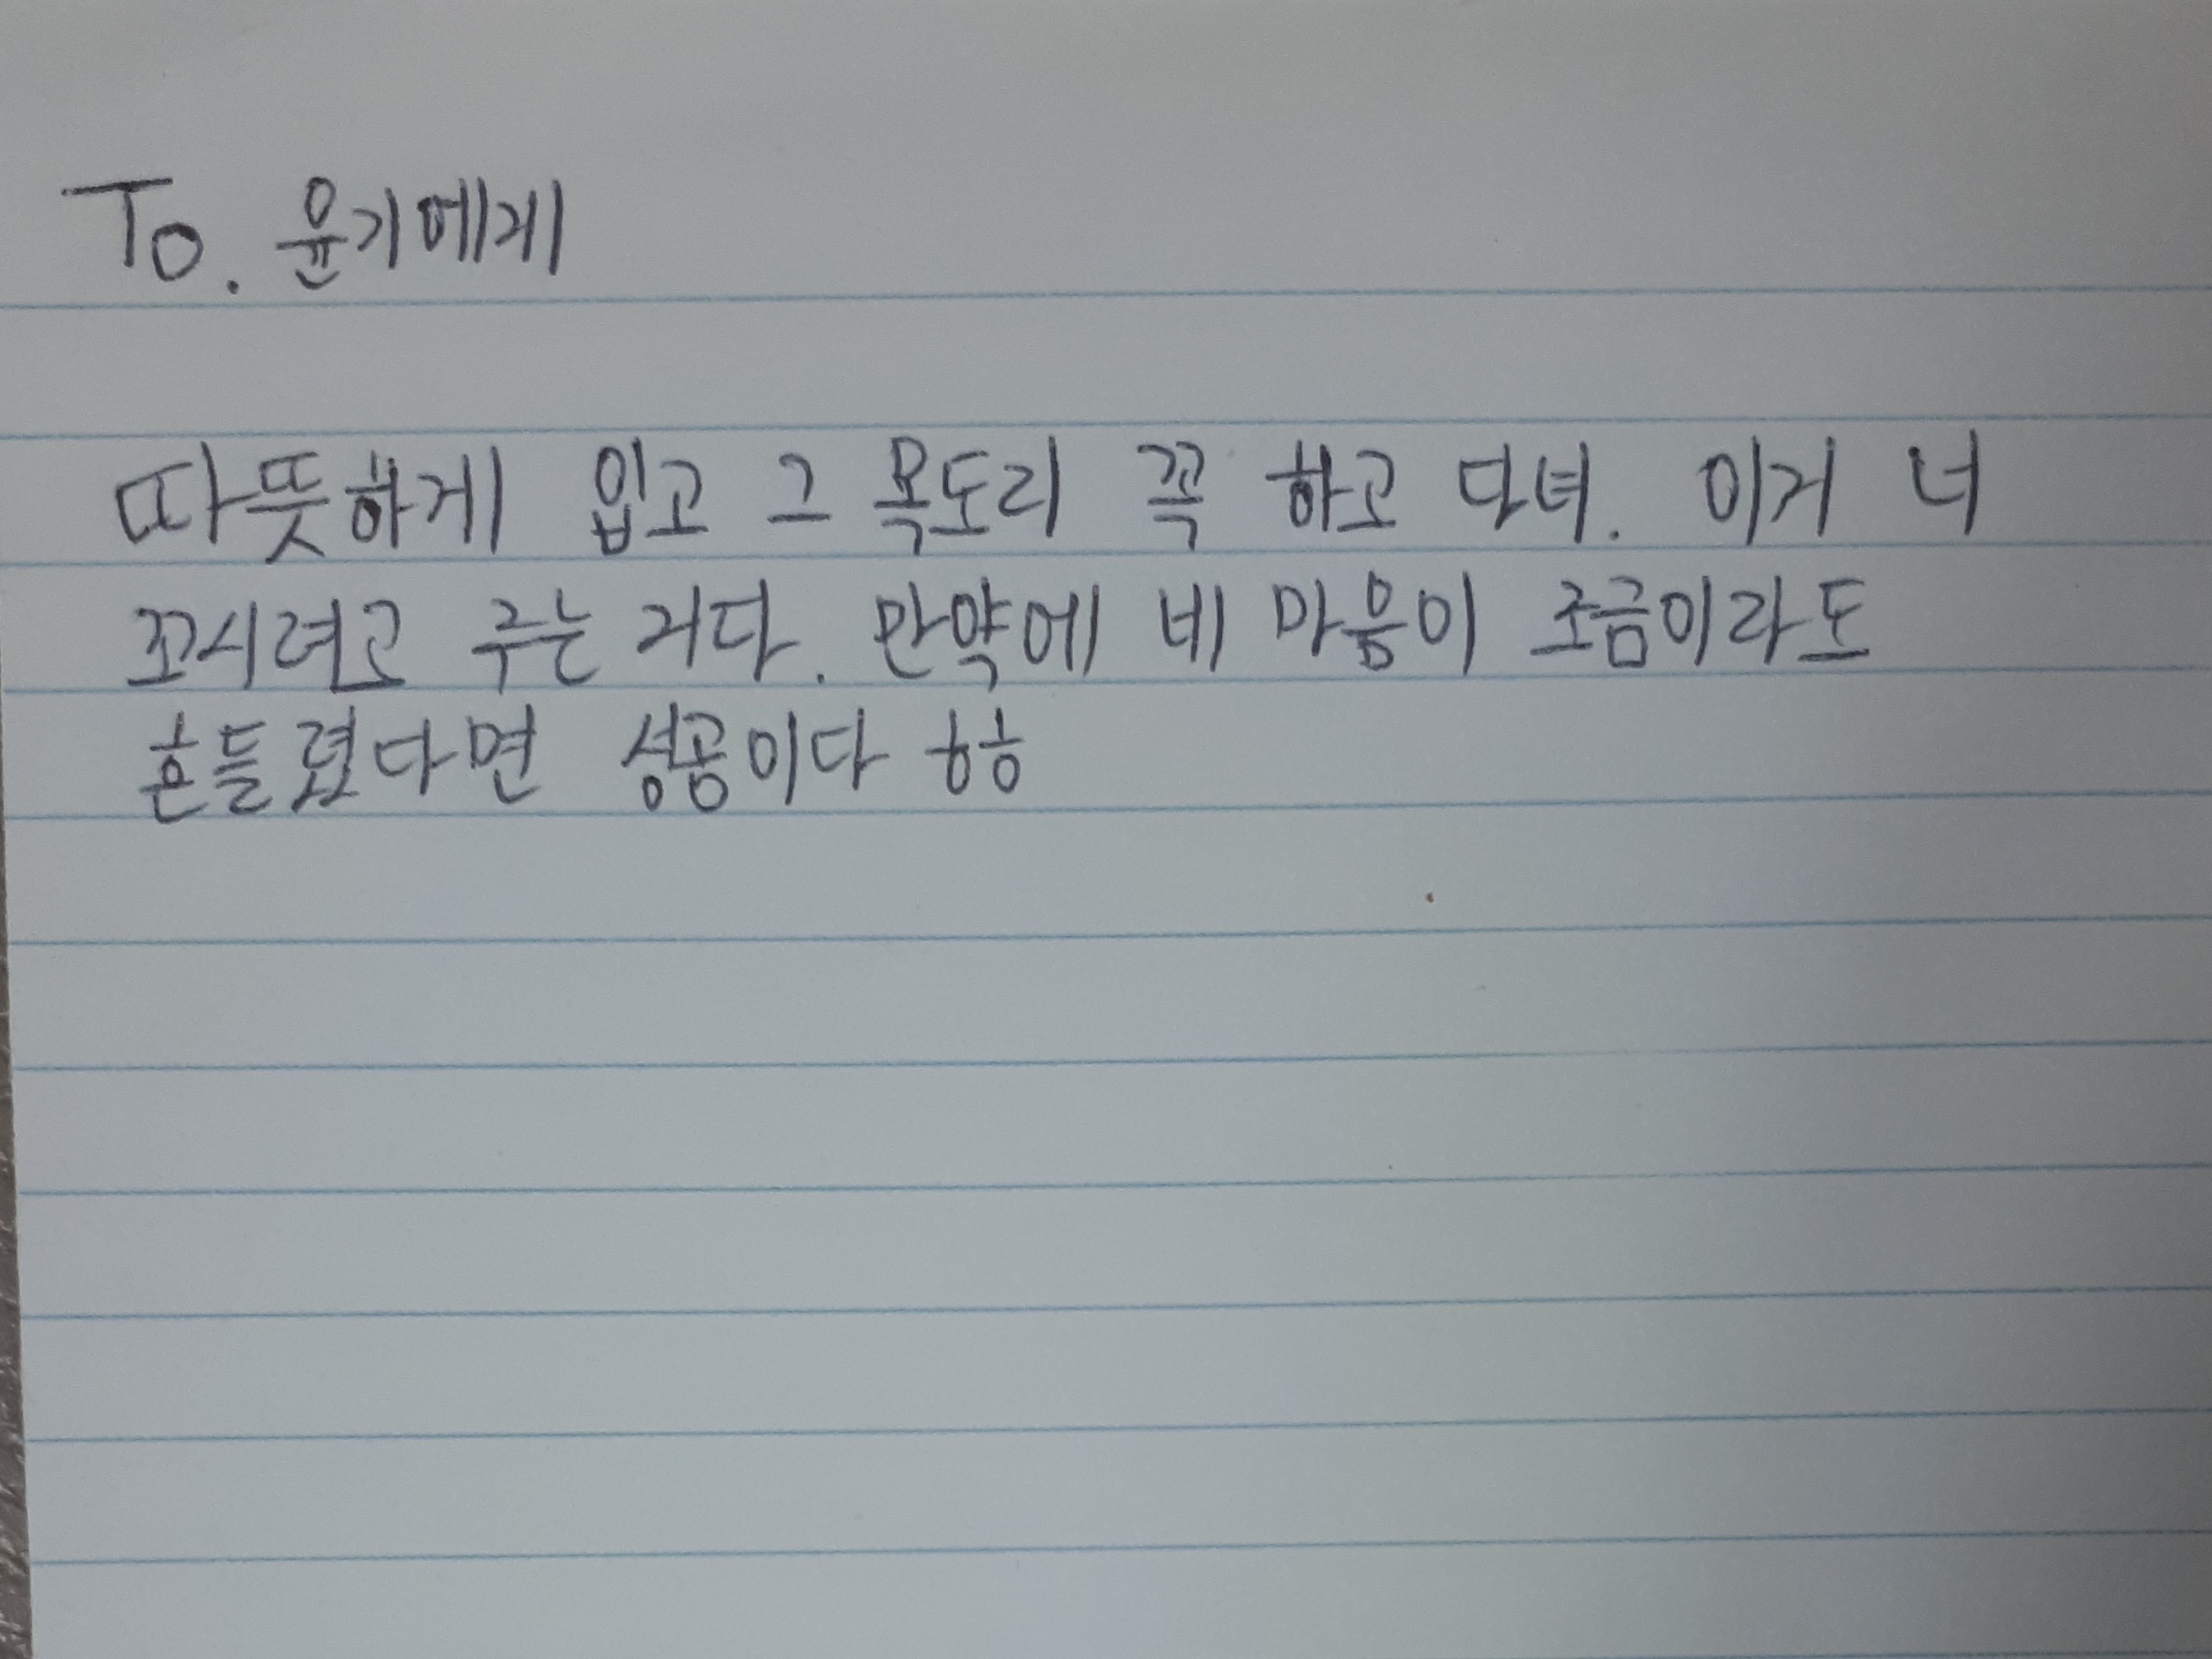 To. 윤기에게
따뜻하게 입고 그 목도리 꼭 하고 다녀. 이거 너
꼬시려고 주는 거다. 만약에 네 마음이 조금이라도
흔들렸다면 성공이다 ㅎㅎ